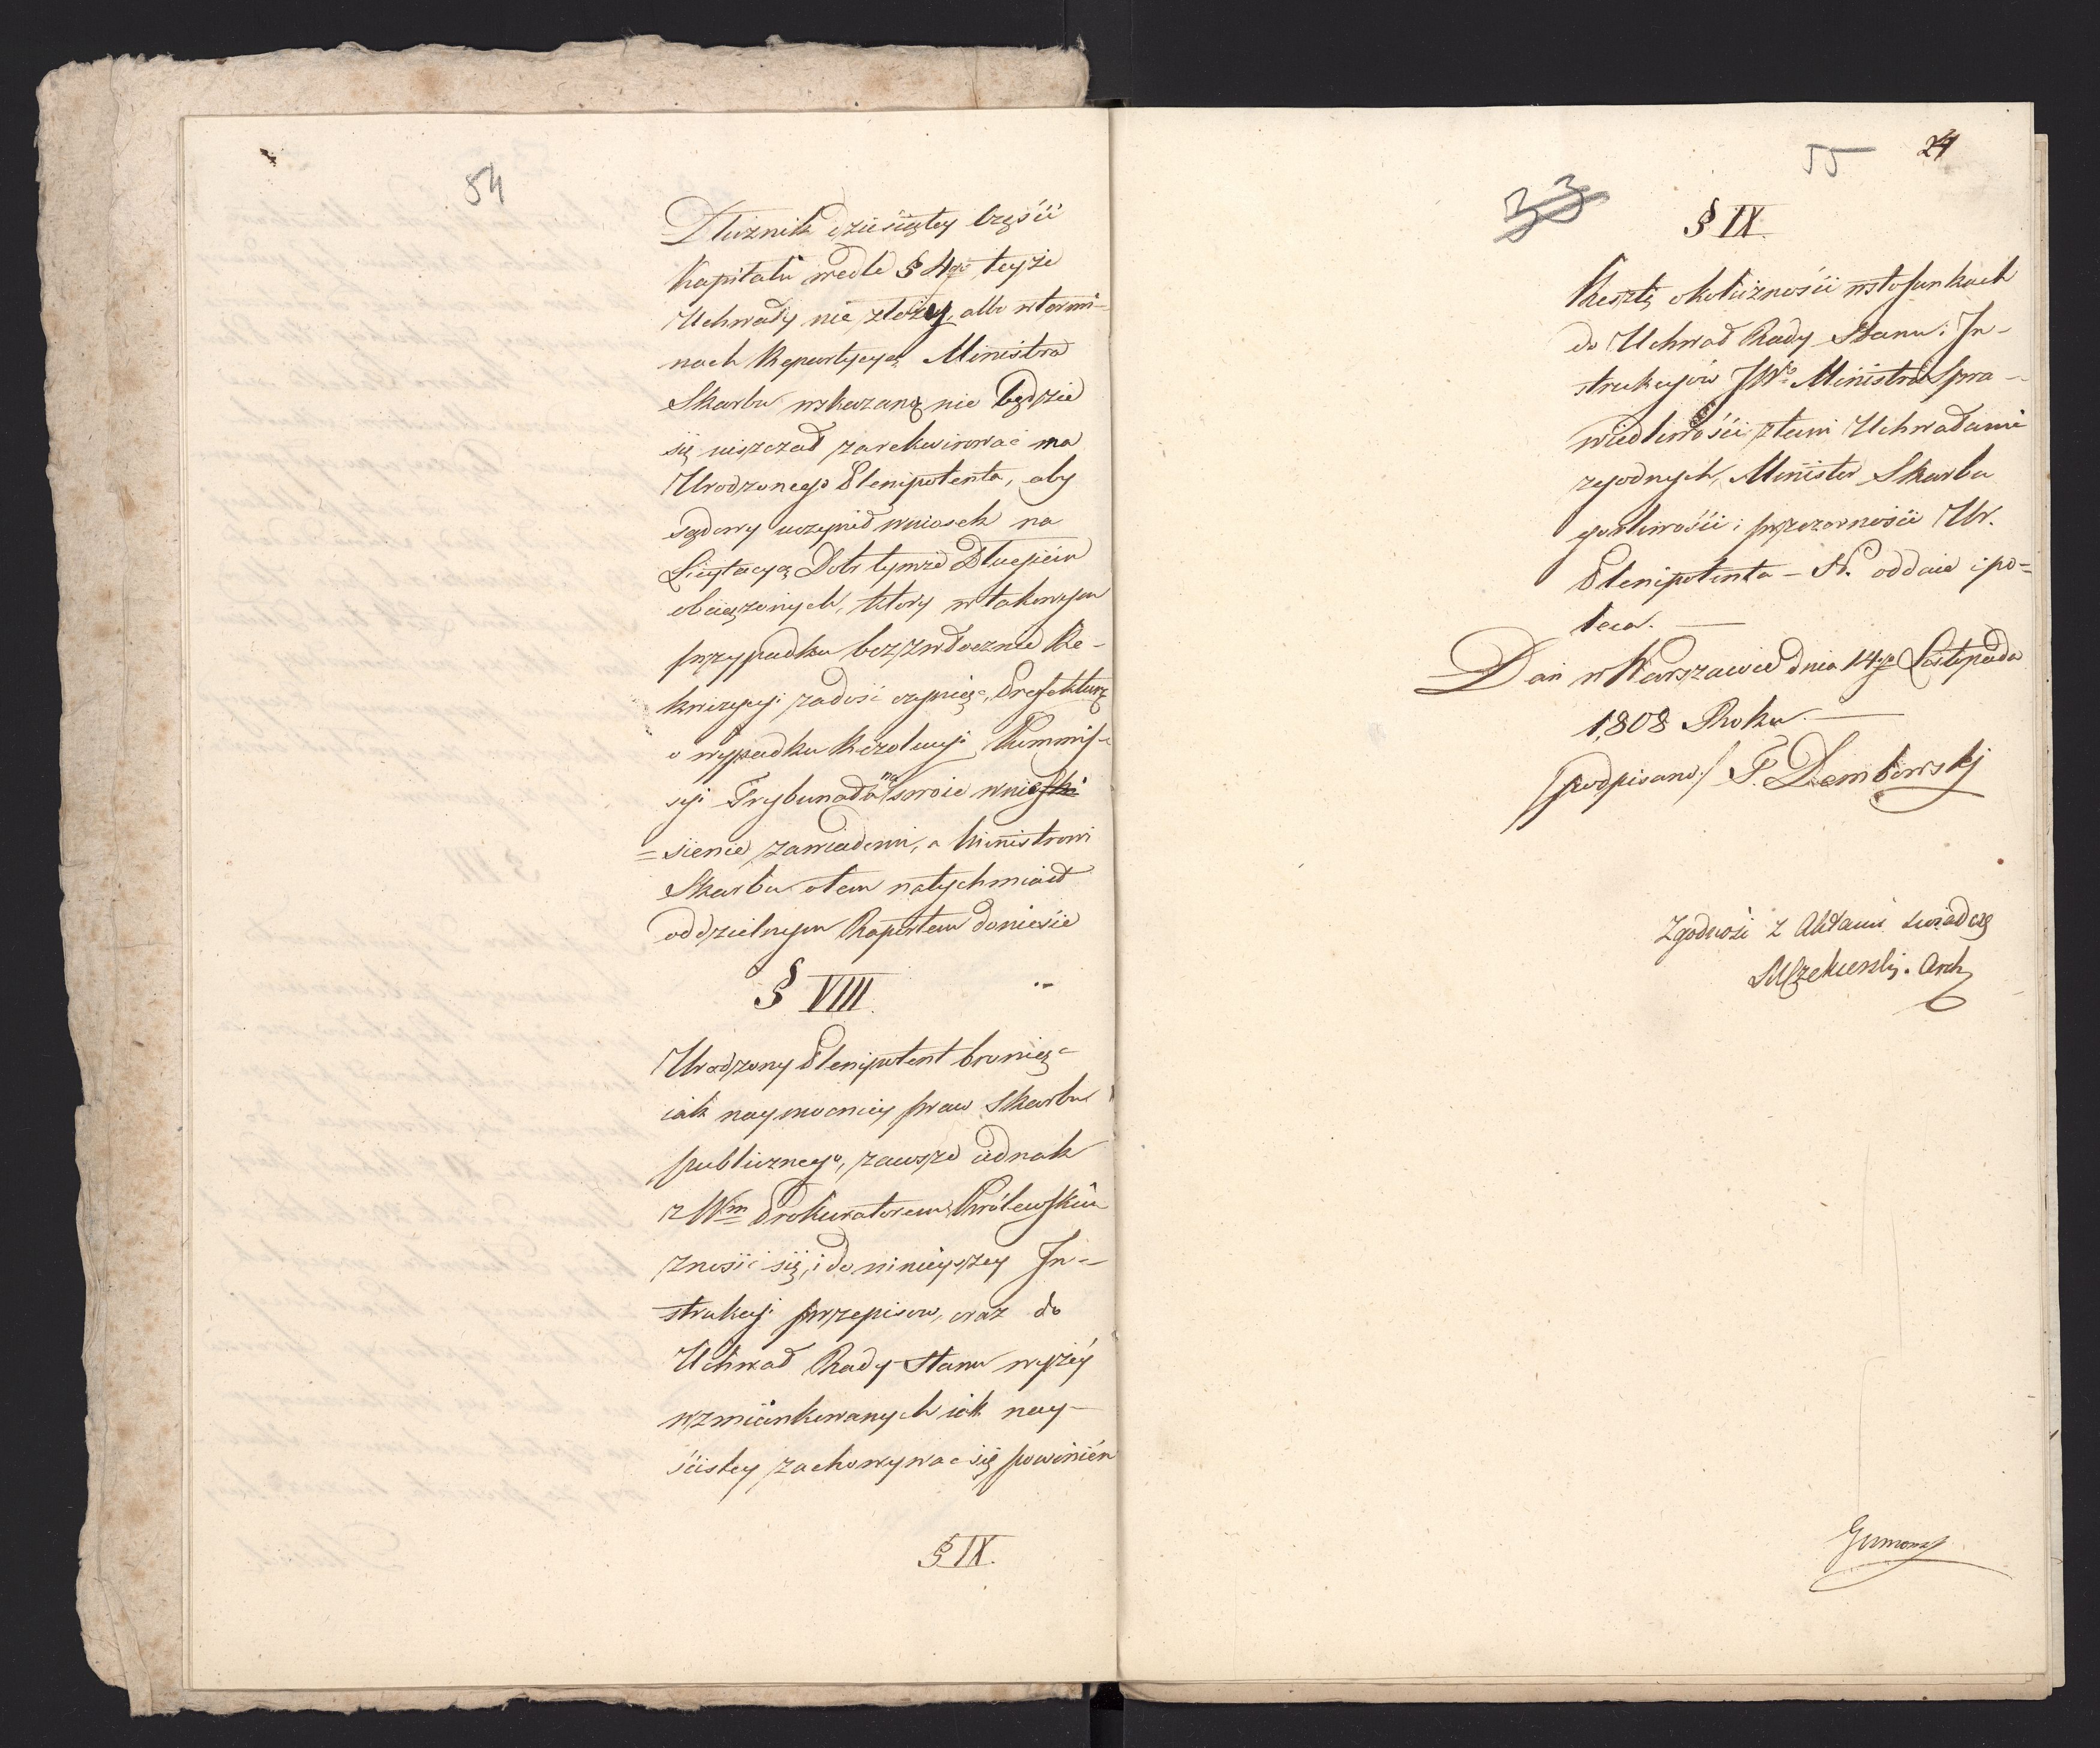 54
Dłużnik dziesiątey części
Kapitału wedle § 4go teyże
Uchwały nie złoży, albo w termi-
nach Repartycyą Ministra
Skarbu wskazaną nie będzie
się uiszczał zarekwirować ma
Urodzonego Plenipotenta, aby
sądowy uczynił wniosek na
Licytacyą Dóbr tymże Długiem
obciążonych, który w takowym
przypadku bezzwłocznie Re-
kwizycyi zadość czyniąc, Prefekturę
o wypadku Rezolucyi Kommis-
syi Trybunału na swoie wnie
=sienie zawiadomi, a Ministrowi
Skarbu o tem natychmiast
oddzielnym Raportem doniesie
§ VIII.
Urodzony Plenipotent broniąc
iak naymocniey praw Skarbu
publicznego, zawsze iednak
z Wm Prokuratorem Królewskim
znosić się, i do ninieyszey In-
strukcyi przepisow, oraz do
Uchwał Rady Stanu wyżéy
wzmiankowanych iak nay-
ściśley zachowywać się powinién
§ IX.
55
24
33
§ IX.
Resztę okoliczności w stosunkach
do Uchwał Rady Stanu i In-
strukcyiów JWo Ministra Spra-
wiedliwości z temi Uchwałami
zgodnych, Minister Skarbu
gorliwości i przezorności Ur.
Plenipotenta - N. oddaie i po=
leca. —
Dan w Warszawie dnia 14go Listopada
1808 Roku. —
/podpisano/ T. Dembowskj
Zgodność z Aktami świadczę
Arch